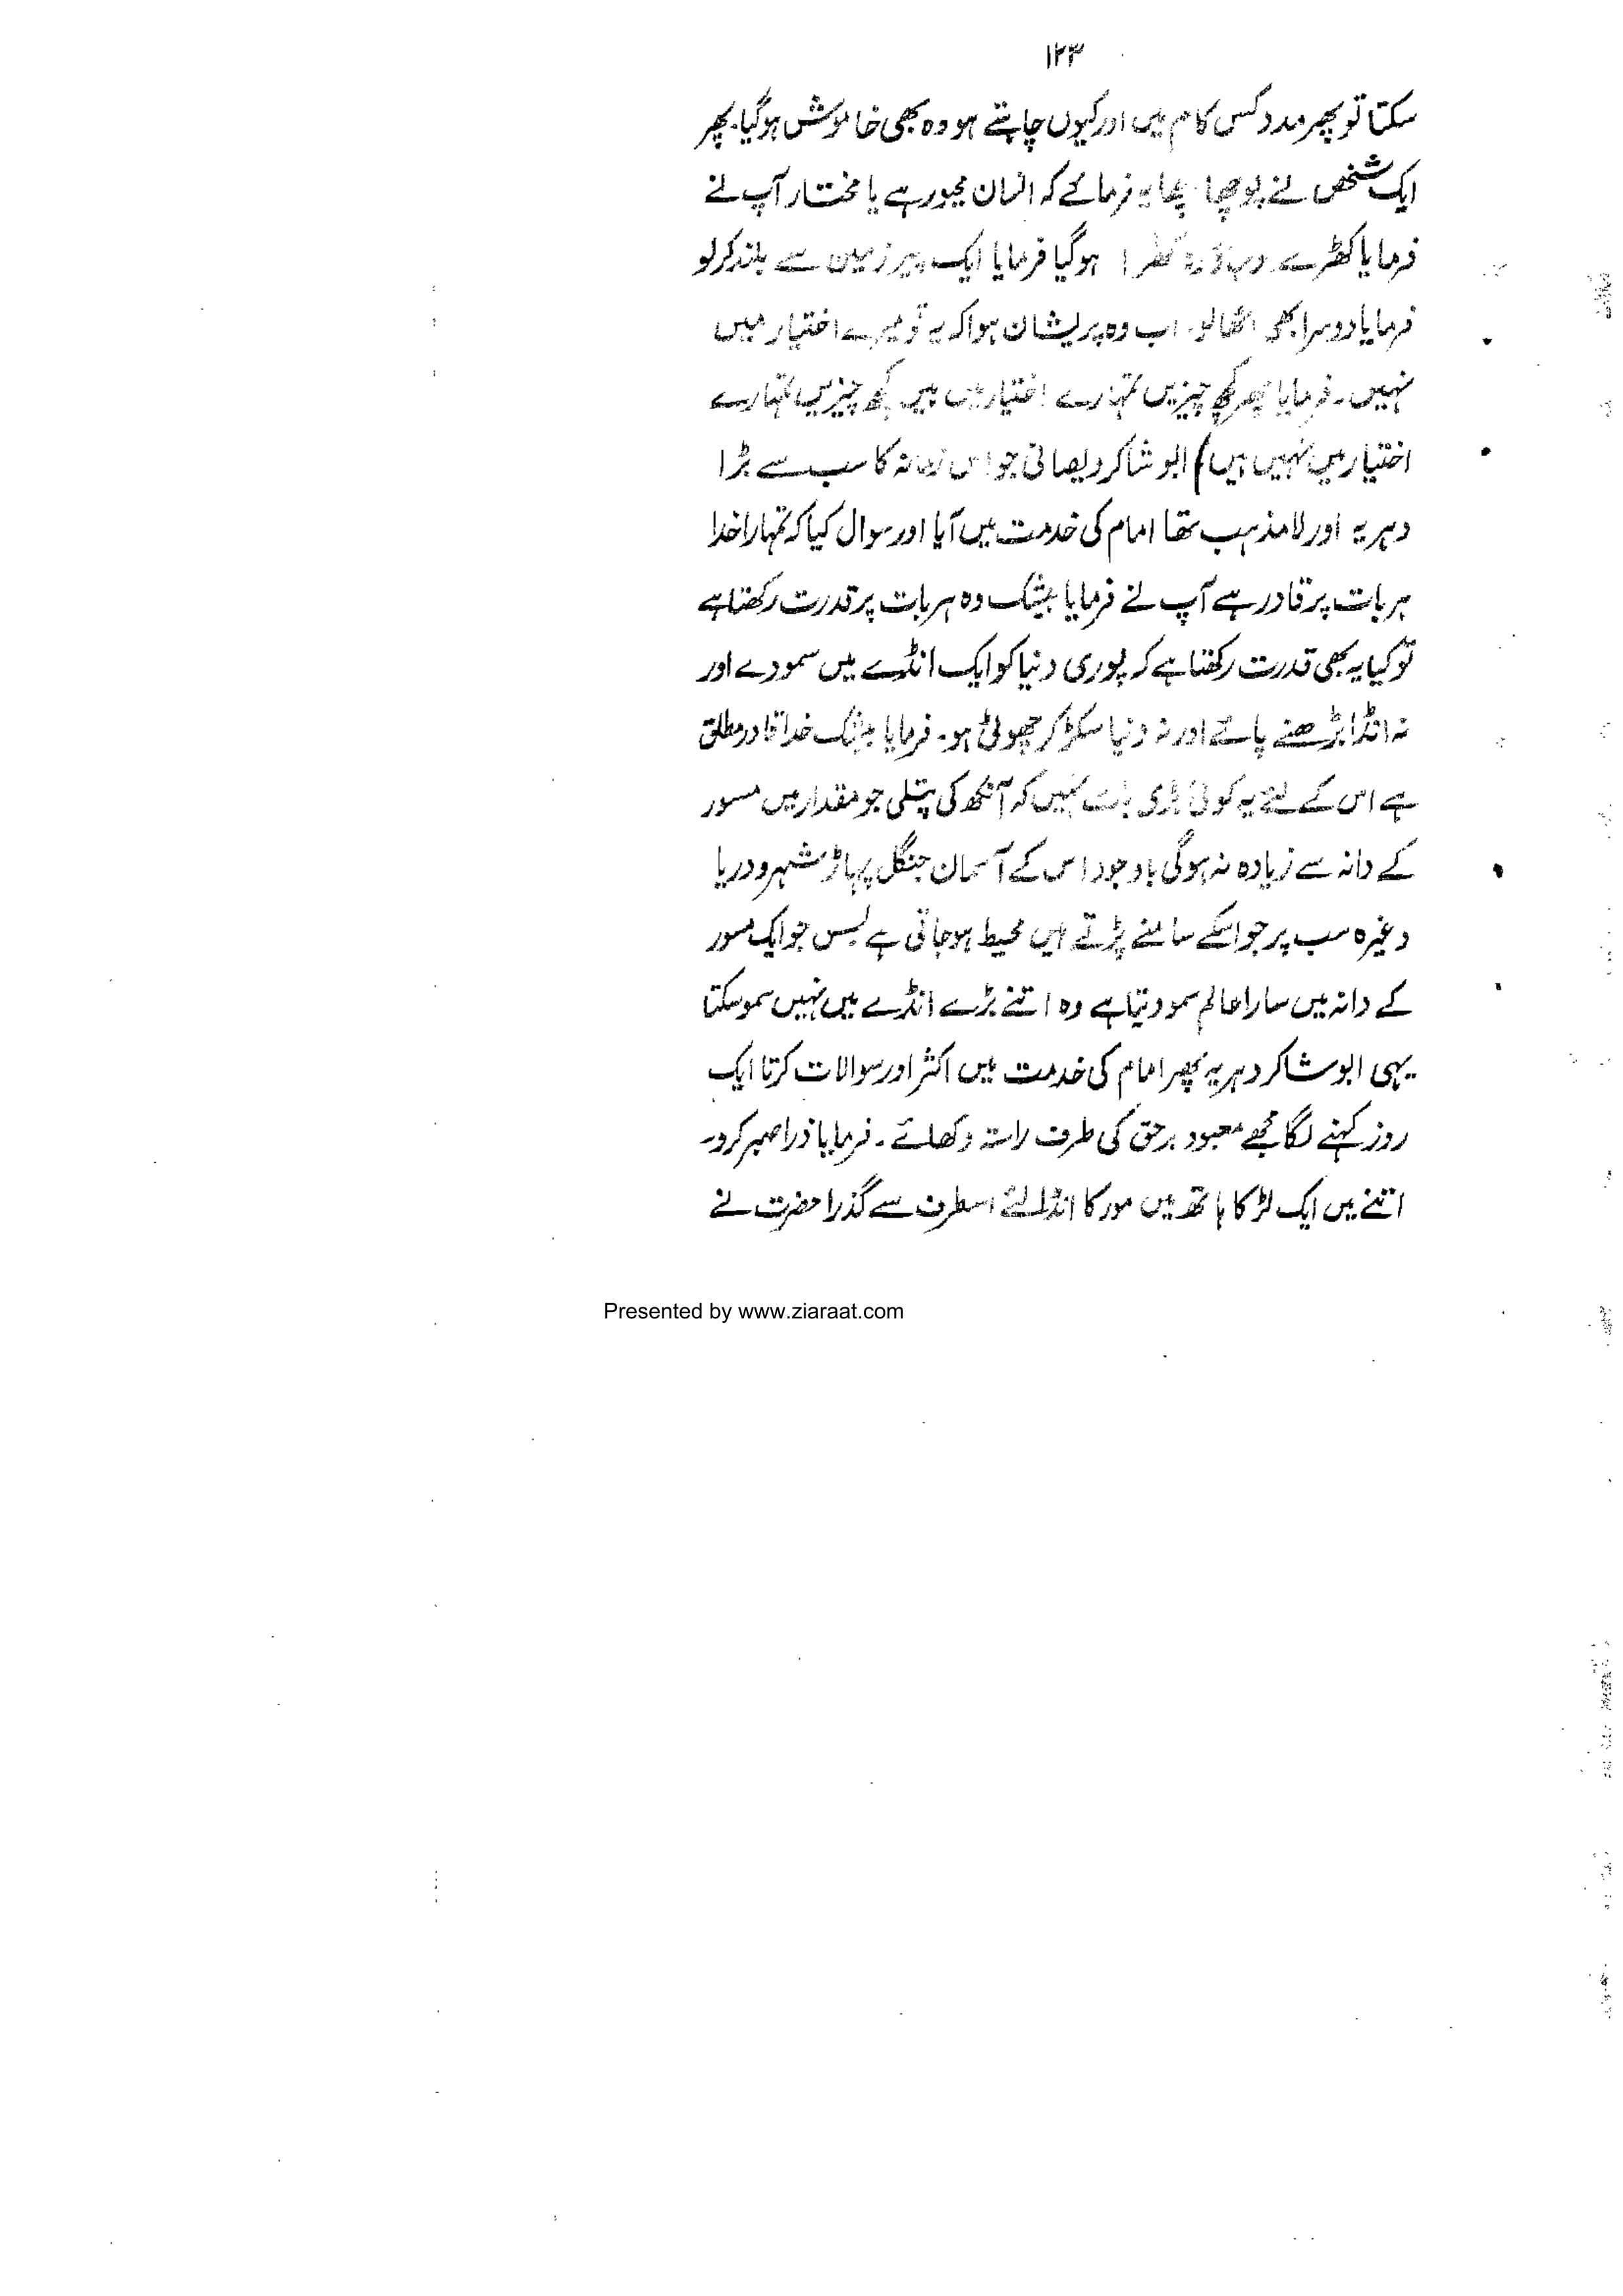 ۱۲۳
سکتا تو پھر مدد کس کام میں اور کیوں چاہتے ہو وہ بھی خاموش ہوگیا۔ پھر
ایک شخص نے پوچھا اچھا یہ فرمائے کہ انسان مجبور ہے یا مختار آپ نے
فرمایا کھڑے ہوجاؤ وہ کھڑا ہوگیا فرمایا ایک پیر زمین سے بلند کرلو
فرمایا دوسرا بھی اٹھالو۔ اب وہ پریشان ہوا کہ یہ تو میرے اختیار میں
نہیں۔ فرمایا پھر کچھ چیزیں تمہارے اختیار میں ہیں کچھ چیزیں تمہارے
اختیار میں نہیں ہیں) ابو شاکر دیصانی جو اس زمانہ کا سب سے بڑا
دہریہ اور لا مذہب تھا امام کی خدمت میں آیا اور سوال کیا کہ تمہارا خدا
ہر بات پر قادر ہے آپ نے فرمایا بیشک وہ ہر بات پر قدرت رکھتا ہے
تو کیا یہ بھی قدرت رکھتا ہے کہ پوری دنیا کو ایک انڈے میں سمودے اور
نہ انڈا بڑھنے پائے اور نہ دنیا سکڑ کر چھوٹی ہو۔ فرمایا بیشک خدا قادر مطلق
ہے اس کے لئے یہ کوئی بڑی بات نہیں کہ آنکھ کی پتلی جو مقدار میں مسور
کے دانہ سے زیادہ نہ ہوگی باوجود اس کے آسمان جنگل پہاڑ شہر و دریا
وغیرہ سب پر جو اسکے سامنے پڑتے ہیں محیط ہوجاتی ہے بس جو ایک مسور
کے دانہ میں سارا عالم سمو دیتا ہے وہ اتنے بڑے انڈے میں نہیں سموسکتا
یہی ابو شاکر دہریہ پھر امام کی خدمت میں اکثر اور سوالات کرتا ایک
روز کہنے لگا مجھے معبود برحق کی طرف راستہ دکھائے۔ فرمایا ذرا صبر کرو۔
اتنے میں ایک لڑکا ہاتھ میں مور کا انڈا لئے اسطرف سے گذرا حضرت نے
Presented by www.ziaraat.com